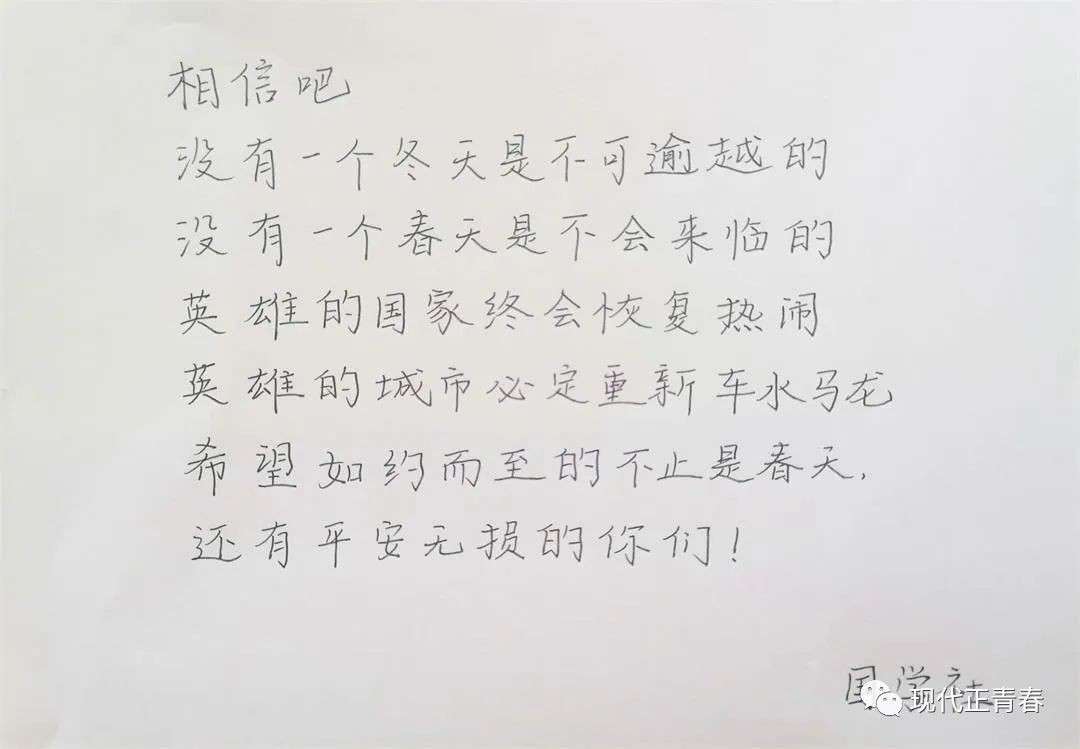 相信吧
没有一个冬天是不可逾越的
没有一个春天是不会来临的
英雄的国家终会恢复热闹
英雄的城市必定重新车水马龙
希望如约而至的不止是春天.
还有平安无损的你们!
国学社
现代正青春